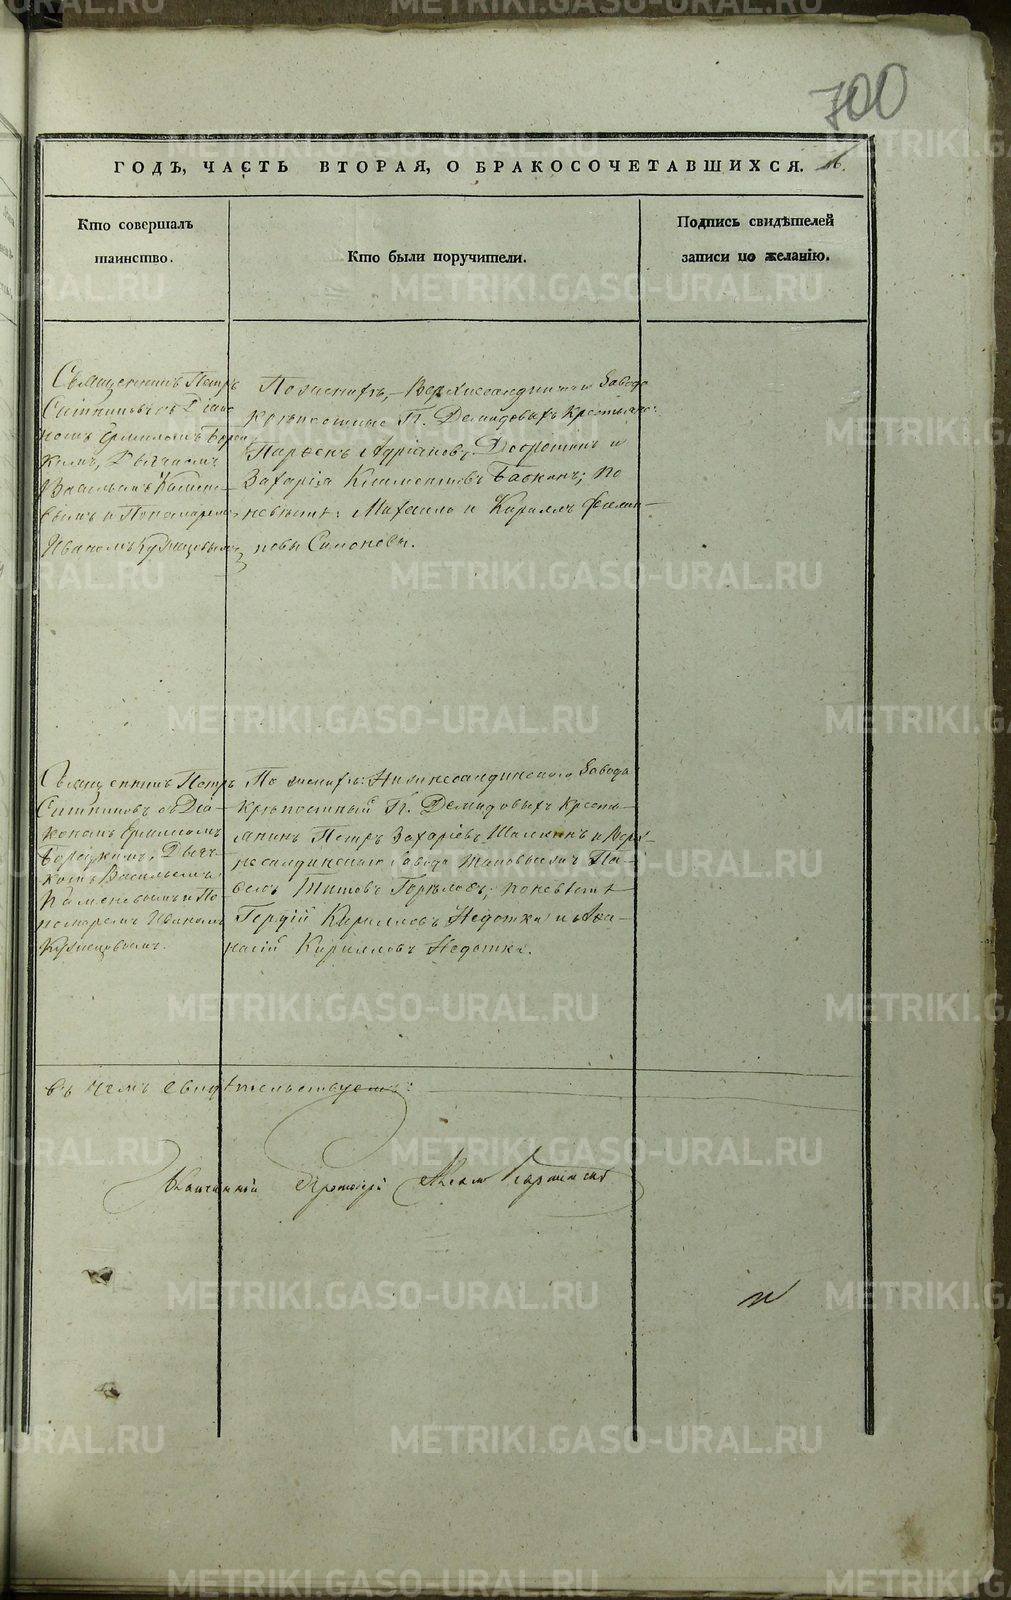 700
ГОДЪ, ЧАСТЬ ВТОРАЯ, О БРАКОСОЧЕТАВШИХСЯ.
Кто совершалъ
таинство.
Кто были поручители.
Подпись свидѣтелей
записи по желанію.
Священникъ Петръ
Ситниковъ съ Діако
номъ Ермиломъ
Дьячкомъ
Васильемъ Камене
вымъ и Пономаремъ
Иваномъ Кузнецовымъ
По женихѣ, Верхнесалдинскаго Завода
крѣпостные Г. Демидовыхъ Крестьяне:
Парѳенъ Адріановъ и
Захарія Климентовъ; по
невѣстѣ: Михаило и Кириллъ Филип-
повы Симоновы.
Священникъ Петръ
Ситниковъ съ Діа-
кономъ Ермиломъ
Дьяч-
комъ Васильемъ
Каменевымъ и По-
номаремъ Иваномъ
Кузнецовымъ.
По женихѣ: Нижнесалдинскаго Завода
крѣпостный Г. Демидовыхъ Кресть-
янинъ Петръ Захаріевъ и Верх-
несалдинскаго Завода таковый Па-
велъ Титовъ Горѣловъ; по невѣстѣ
Гордій Кирилловъ Недотка и Аѳа-
насій Кирилловъ Недотка.
въ чемъ свидѣтельствуемъ:
Протоіерей
METRIKI.GASO-URAL.RU